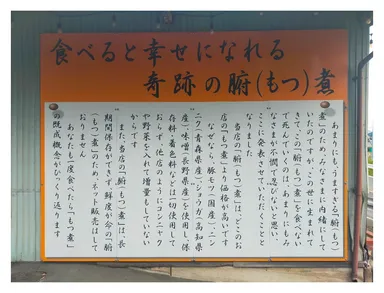 食べると幸せになれる
奇跡の腑(もつ)煮
あまりにもうますぎる「腑(もつ)
煮」のためみなさまに内緒にして
いたのですが、この世に生まれて
きて、この「腑(もつ)煮」を食べない
で死んでいくのは、あまりにもみ
なさまが不憫で忍びないと思い、
ここに発表させていただくことと
なりました
当店の「腑(もつ)煮」は、どこのお
店の「もつ煮」より価格が高いです
なぜなら、豚モツ(国産)、ニン
ニク(青森県産)、ショウガ(高知県
産)、味噌(長野県産)を使用し、保
存料・着色料などは一切使用して
おらず、他店のようにコンニャク
や野菜を入れて増量もしていない
からです
また、当店の「腑(もつ)煮」は、長
期間保存ができず、鮮度が命の「腑
(もつ)煮」のため、ネット販売はして
おりません
あなたも一度食べたら「もつ煮」
の既成概念がひっくり返ります